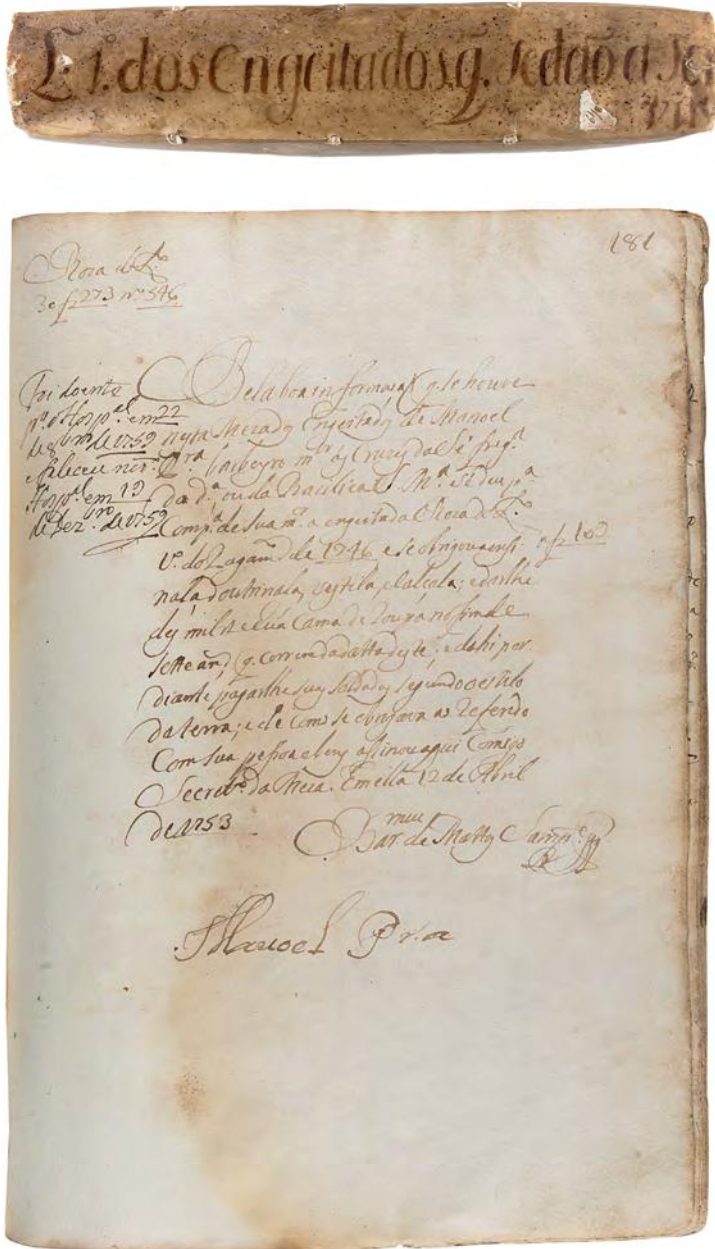 L. 1.º dos Engeitados q̃. se dão a Ser
vir
181
Roza de L.ª
3 o f 273 nº 546
Foi doente
p.ª o Hosp.al em 22
de 8bro de 1759
e faleceu no
Hosp.al em 19
de Dez.bro de 1759
Pela boa informação q. se houve
nesta Meza dos Engeitados de Manoel
Pr.ª barbeyro m.or ás Cruzes da Sé freg.ª
da d.ª ou da Basilica de S. M.ª se deu p.ª
Comp.ª de sua m.er a engeitada Roza de L.ª
L.º do Pagam.to de 1746 f 100 e se obrigou a ensi
nala doutrinala, vestila, e calçala; e darlhe
dez mil rs e hũa Cama de Roupa no fim de
sette an.s q. correm da datta deste; e dahi por
diante pagarlhe seus soldados segundo o estilo
da terra; e de como se obrigou ao Referido
Com sua pessoa e bens assinou aqui Comigo
Secret.º da Meza. Em ella 12 de Abril
de 1753
Bar.meu de Mattos
Manoel Pr.a